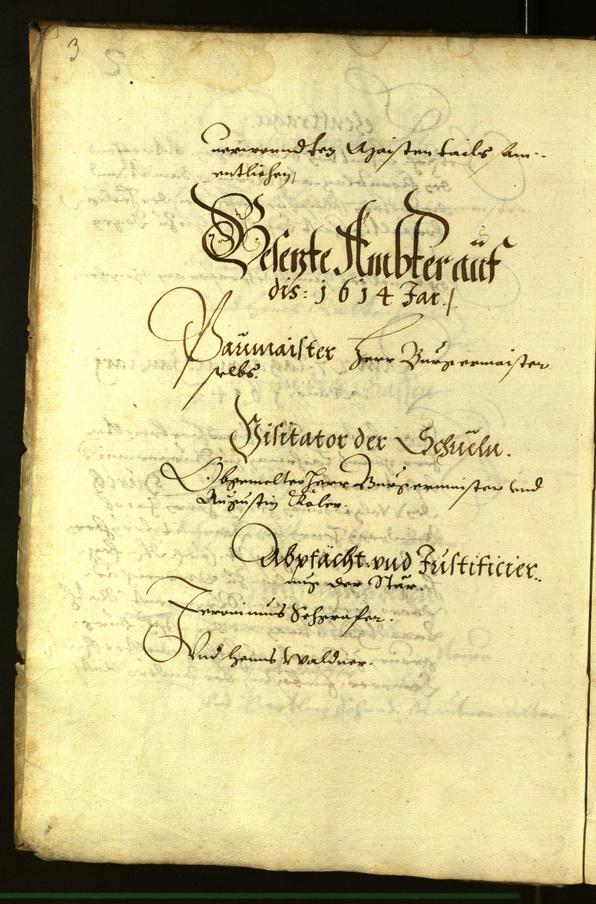 3
verwonndten Maistentails Am-
entlichen/
Besetzte Ambter auf
dis: 1614 Jar./
Baumaister Herr Burgermaister
selbs.
Visitator der Schueln.
Obgemelter Herr Burgermaister vnd
Augustin Koler.
Abpfächt: vnd Justificier..
ung der Star.
Jeronimus Schgrafer.
Vnd Hanns Waldner.